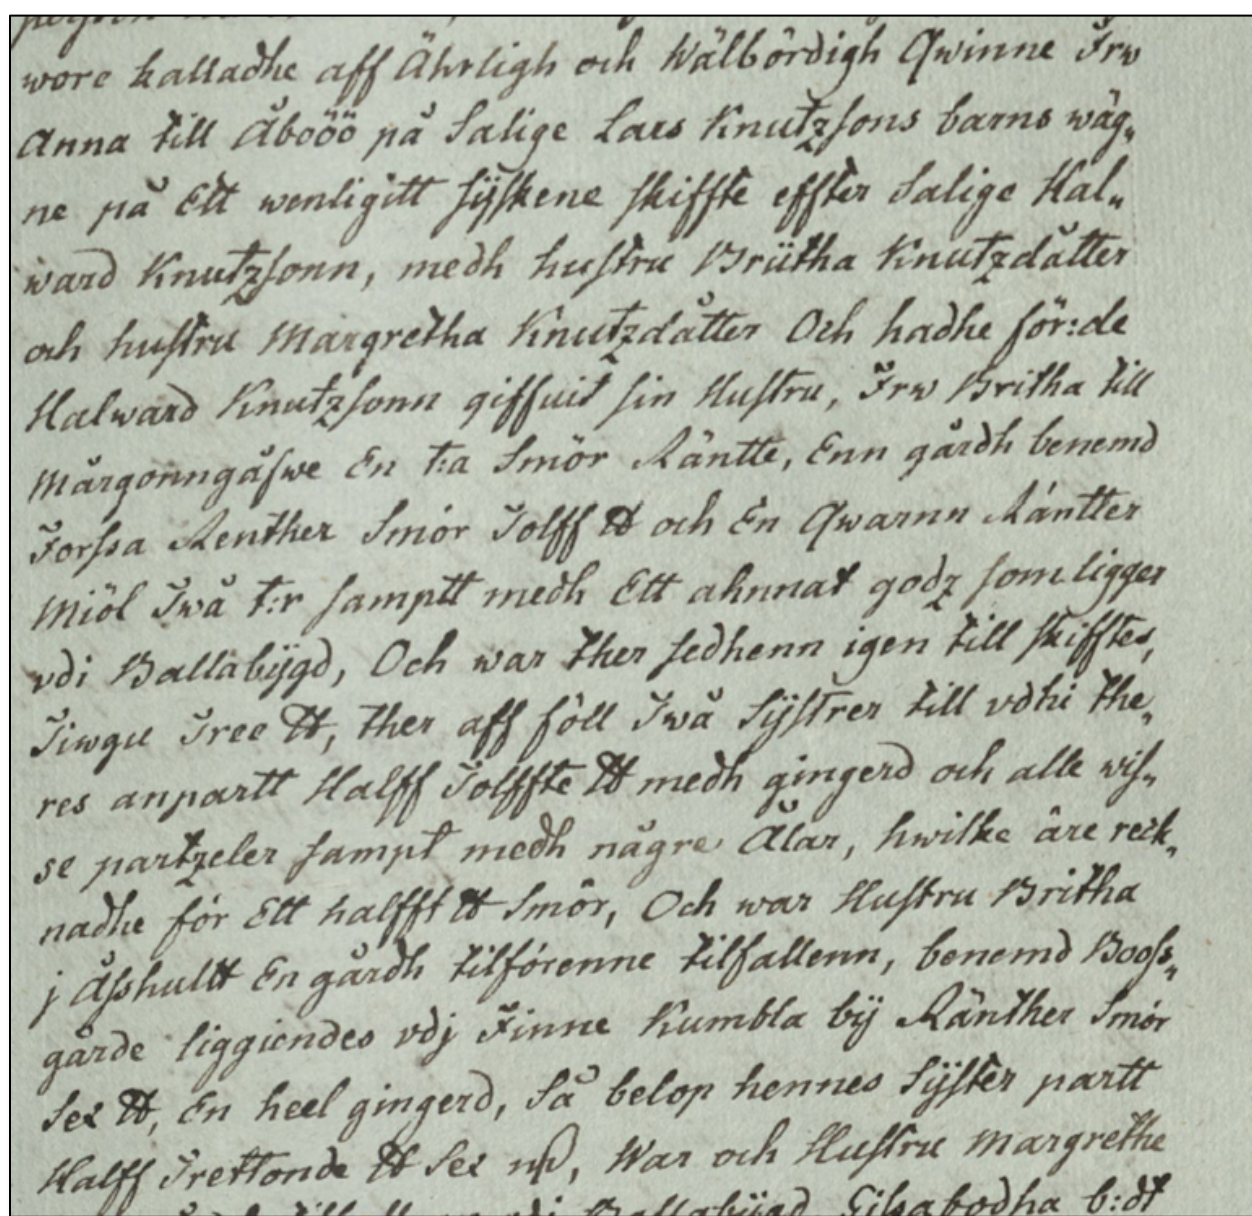 wore kalladhe aff Ährligh och Wälbördigh Qwinne Frw
Anna till Åboöö på Salige Lars Knutzsons barns wäg„
ne på Ett wenligitt sÿskene skiffte effter Salige Hal„
ward Knutzsonn, medh hustru Brütha Knutzdåtter
och hustru Margretha Knutzdåtter Och hadhe för:de
Halward Knutzsonn giffuit sin Hustru, Frw Britha till
Mårgonngåfwe En t:a Smör Räntte, Enn gårdh benemd
Forssa Renther Smör Tolff ℔ och En Qwarnn Räntter
Miöl Twå t:r samptt medh Ett ahnnat godz som ligger
vdi Ballabÿgd, Och war ther sedhenn igen till skifftes,
Tiwgu Tree ℔, ther aff föll Twå Sÿstrer till vdhi the„
res anpartt Halff Tolffte ℔ medh gingerd och alle wis„
se partzeler sampt medh någre Ålar, hwilke äre reck„
nadhe för Ett halfft ℔ Smör, Och war Hustru Britha
j Åsshultt En gårdh tilförenne tilfallenn, benemd Booss„
gårde liggiendes vdj Finne Kumbla bÿ Ränther Smör
Sex ℔, En heel gingerd, Så belop hennes Sÿster partt
Halff Trettonde ℔ Sex Hustru Margrethe
till vdi Ballabÿgd b:dt